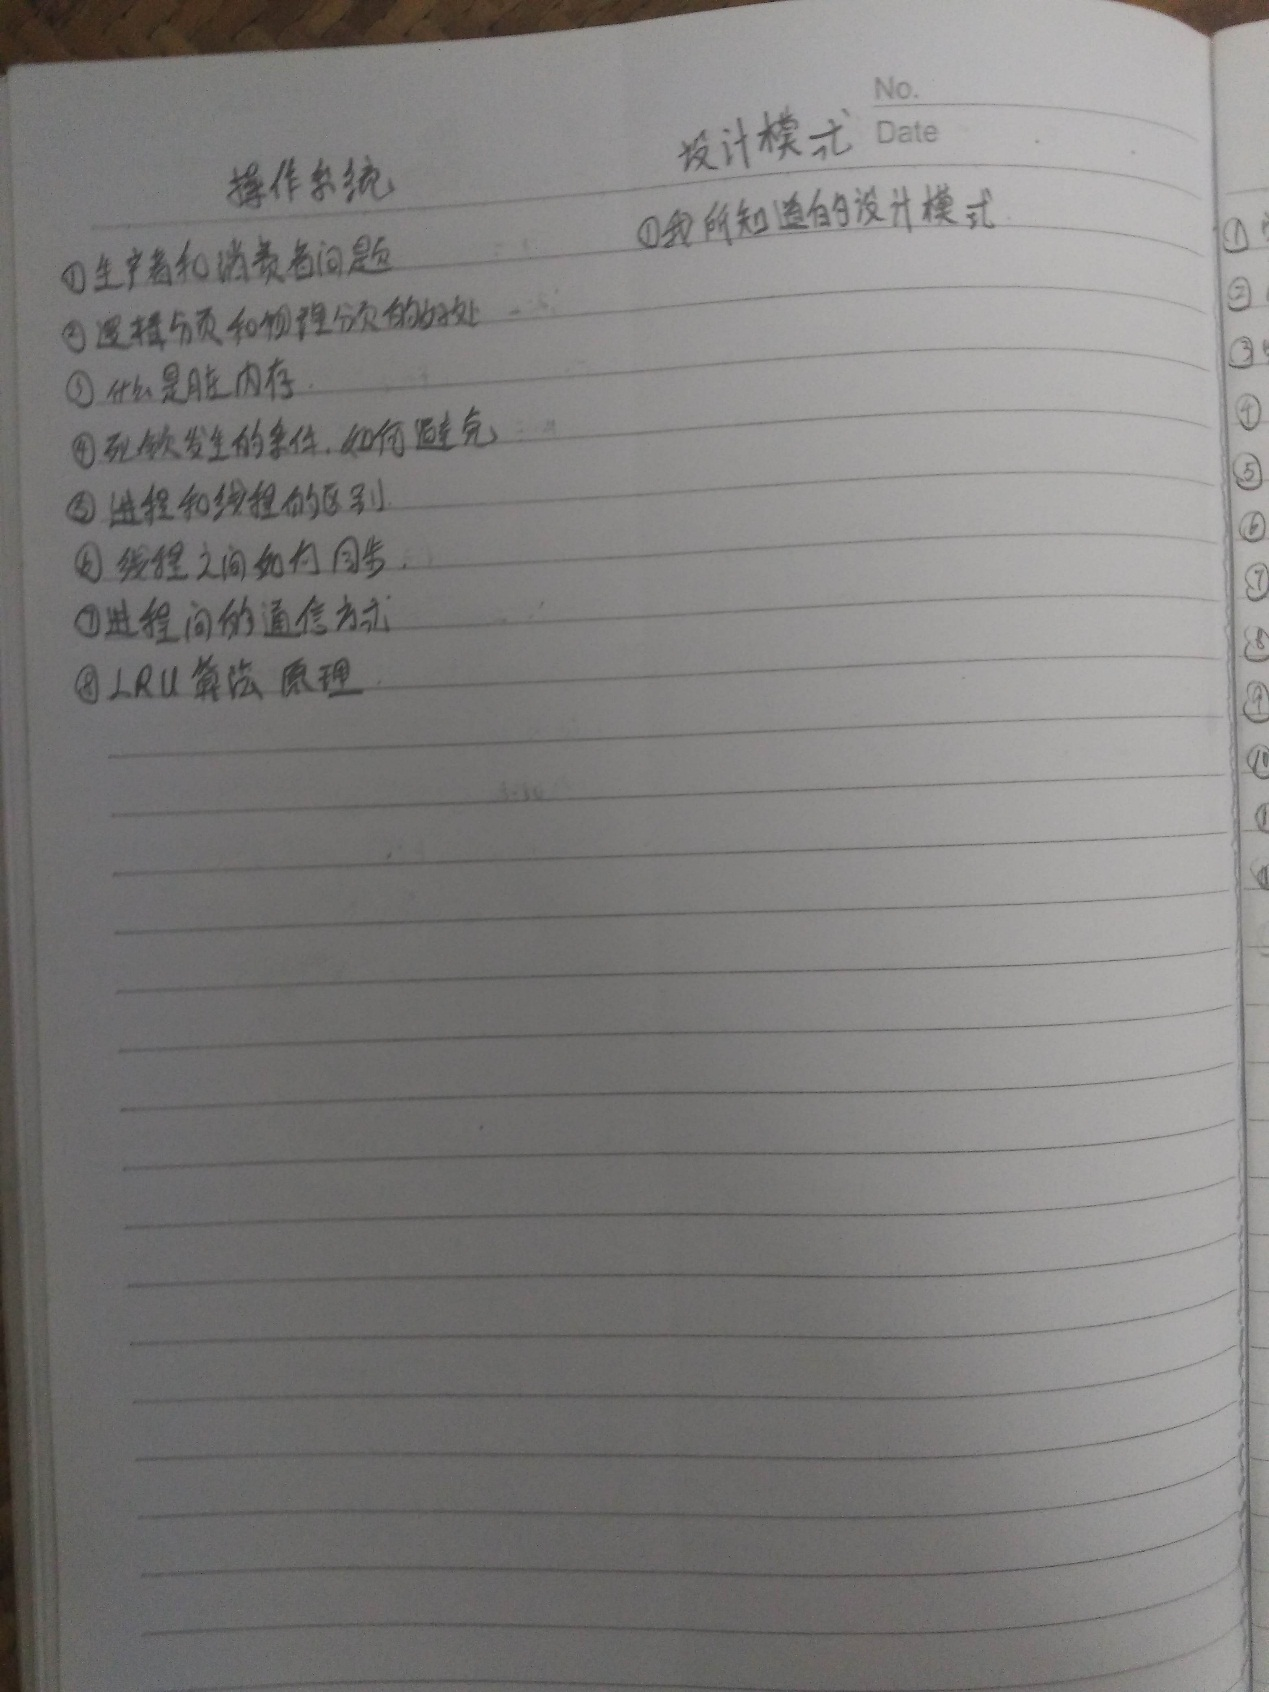 No.
Date
操作系统
①生产者和消费者问题
②逻辑分页和物理分页的好处
③什么是脏内存
④死锁发生的条件,如何避免
⑤进程和线程的区别
⑥线程之间如何同步.
⑦进程间的通信方式
⑧LRU算法原理
设计模式
①我所知道的设计模式
①
②
③
④
⑤
⑥
⑦
⑧
⑨
⑩